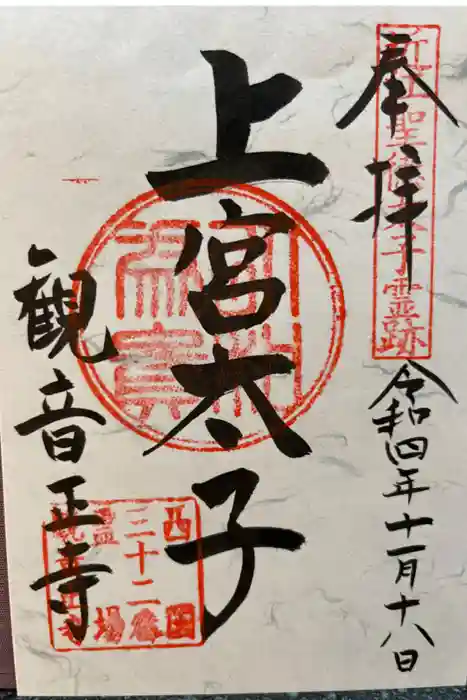 奉拝
近江聖徳太子霊跡
令和四年十一月十八日
上宮太子
観音正寺
西国
三十二番
霊場